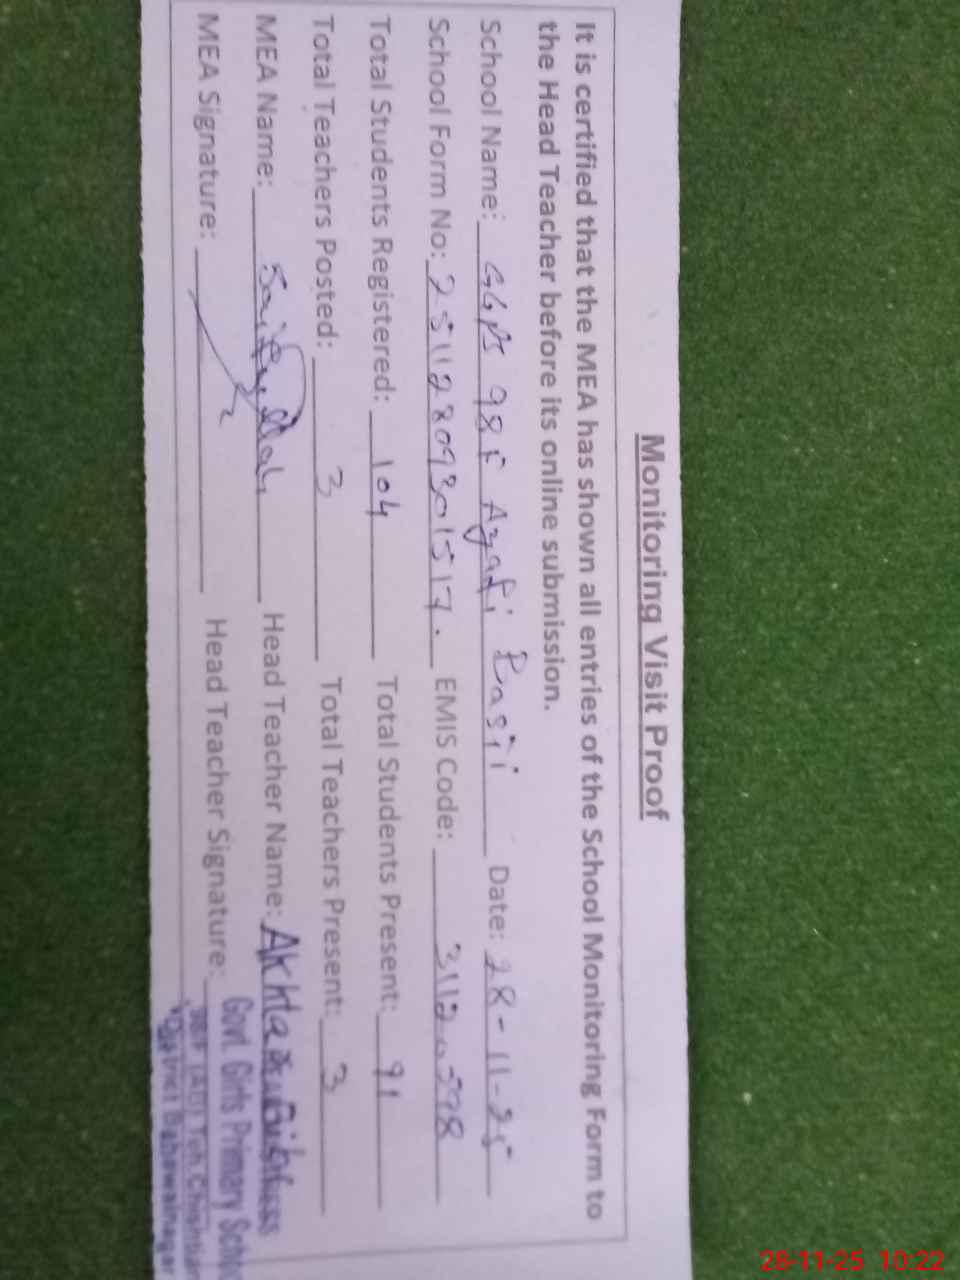 Monitoring Visit Proof
It is certified that the MEA has shown all entries of the School Monitoring Form to
the Head Teacher before its online submission.
School Name: GGPS 98F Azafi Basti Date: 28-11-25
School Form No: 25112809301517. EMIS Code: 31120598
Total Students Registered: 104 Total Students Present: 91
Total Teachers Posted: 3 Total Teachers Present: 3
MEA Name: Head Teacher Name: Akhtar
MEA Signature: Head Teacher Signature:
Govt. Girls Primary School
98/F (AB) Teh. Chishtian
District Bahawalnagar
28-11-25 10:22